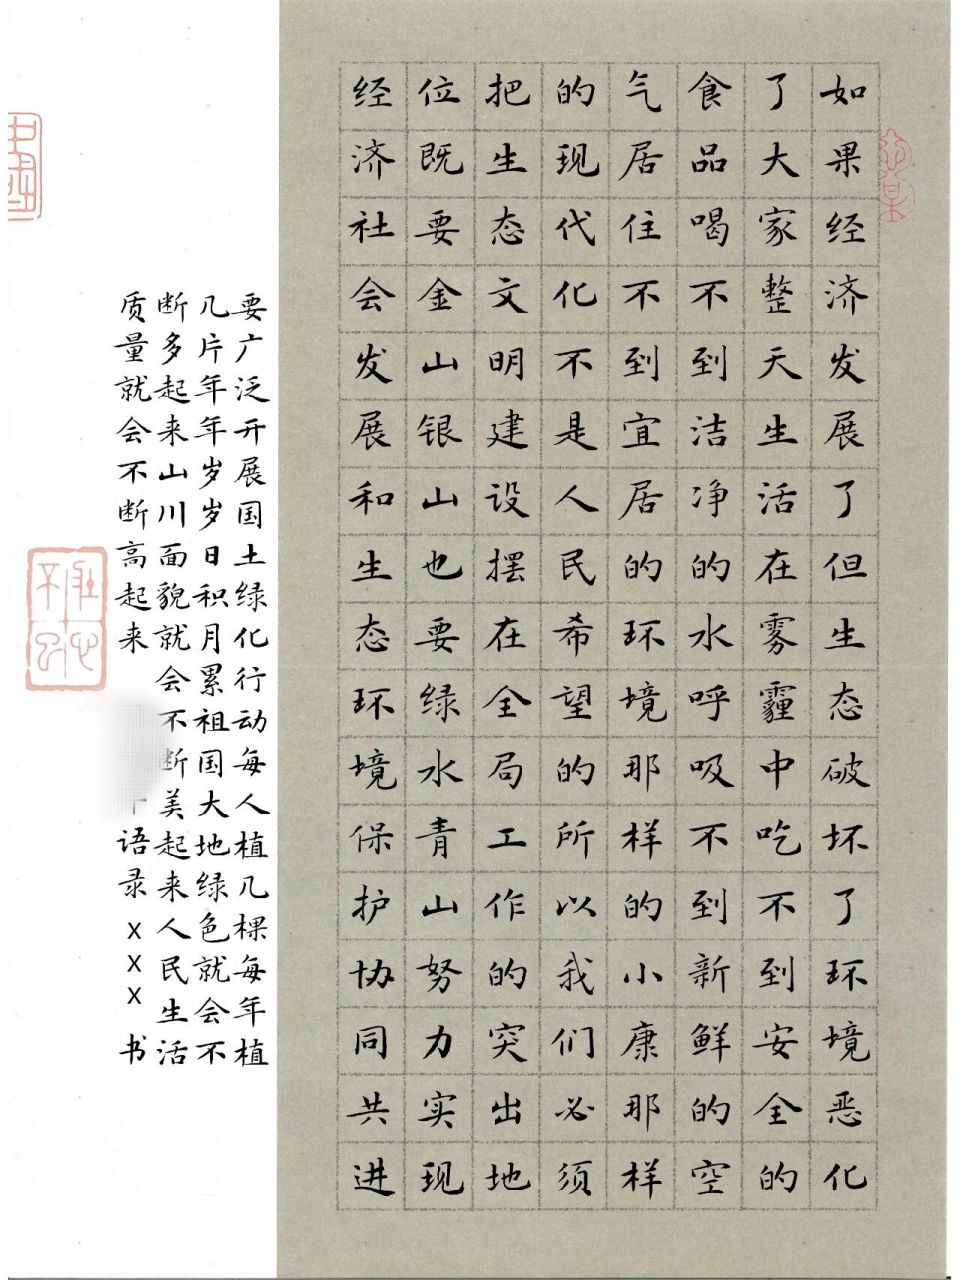 如果经济发展了但生态破坏了环境恶化
了大家整天生活在雾霾中吃不到安全的
食品喝不到洁净的水呼吸不到新鲜的空
气居住不到宜居的环境那样的小康那样
的现代化不是人民希望的所以我们必须
把生态文明建设摆在全局工作的突出地
位既要金山银山也要绿水青山努力实现
经济社会发展和生态环境保护协同共进
要广泛开展国土绿化行动每人植几棵每年植
几片年年岁岁日积月累祖国大地绿色就会不
断多起来山川面貌就会不断美起来人民生活
质量就会不断高起来
语录xxx书